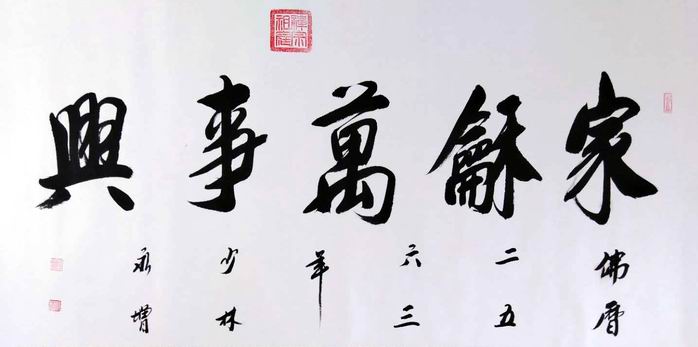 家龢萬事興
佛曆
二五
六三
年
少林
永增
禪宗祖庭